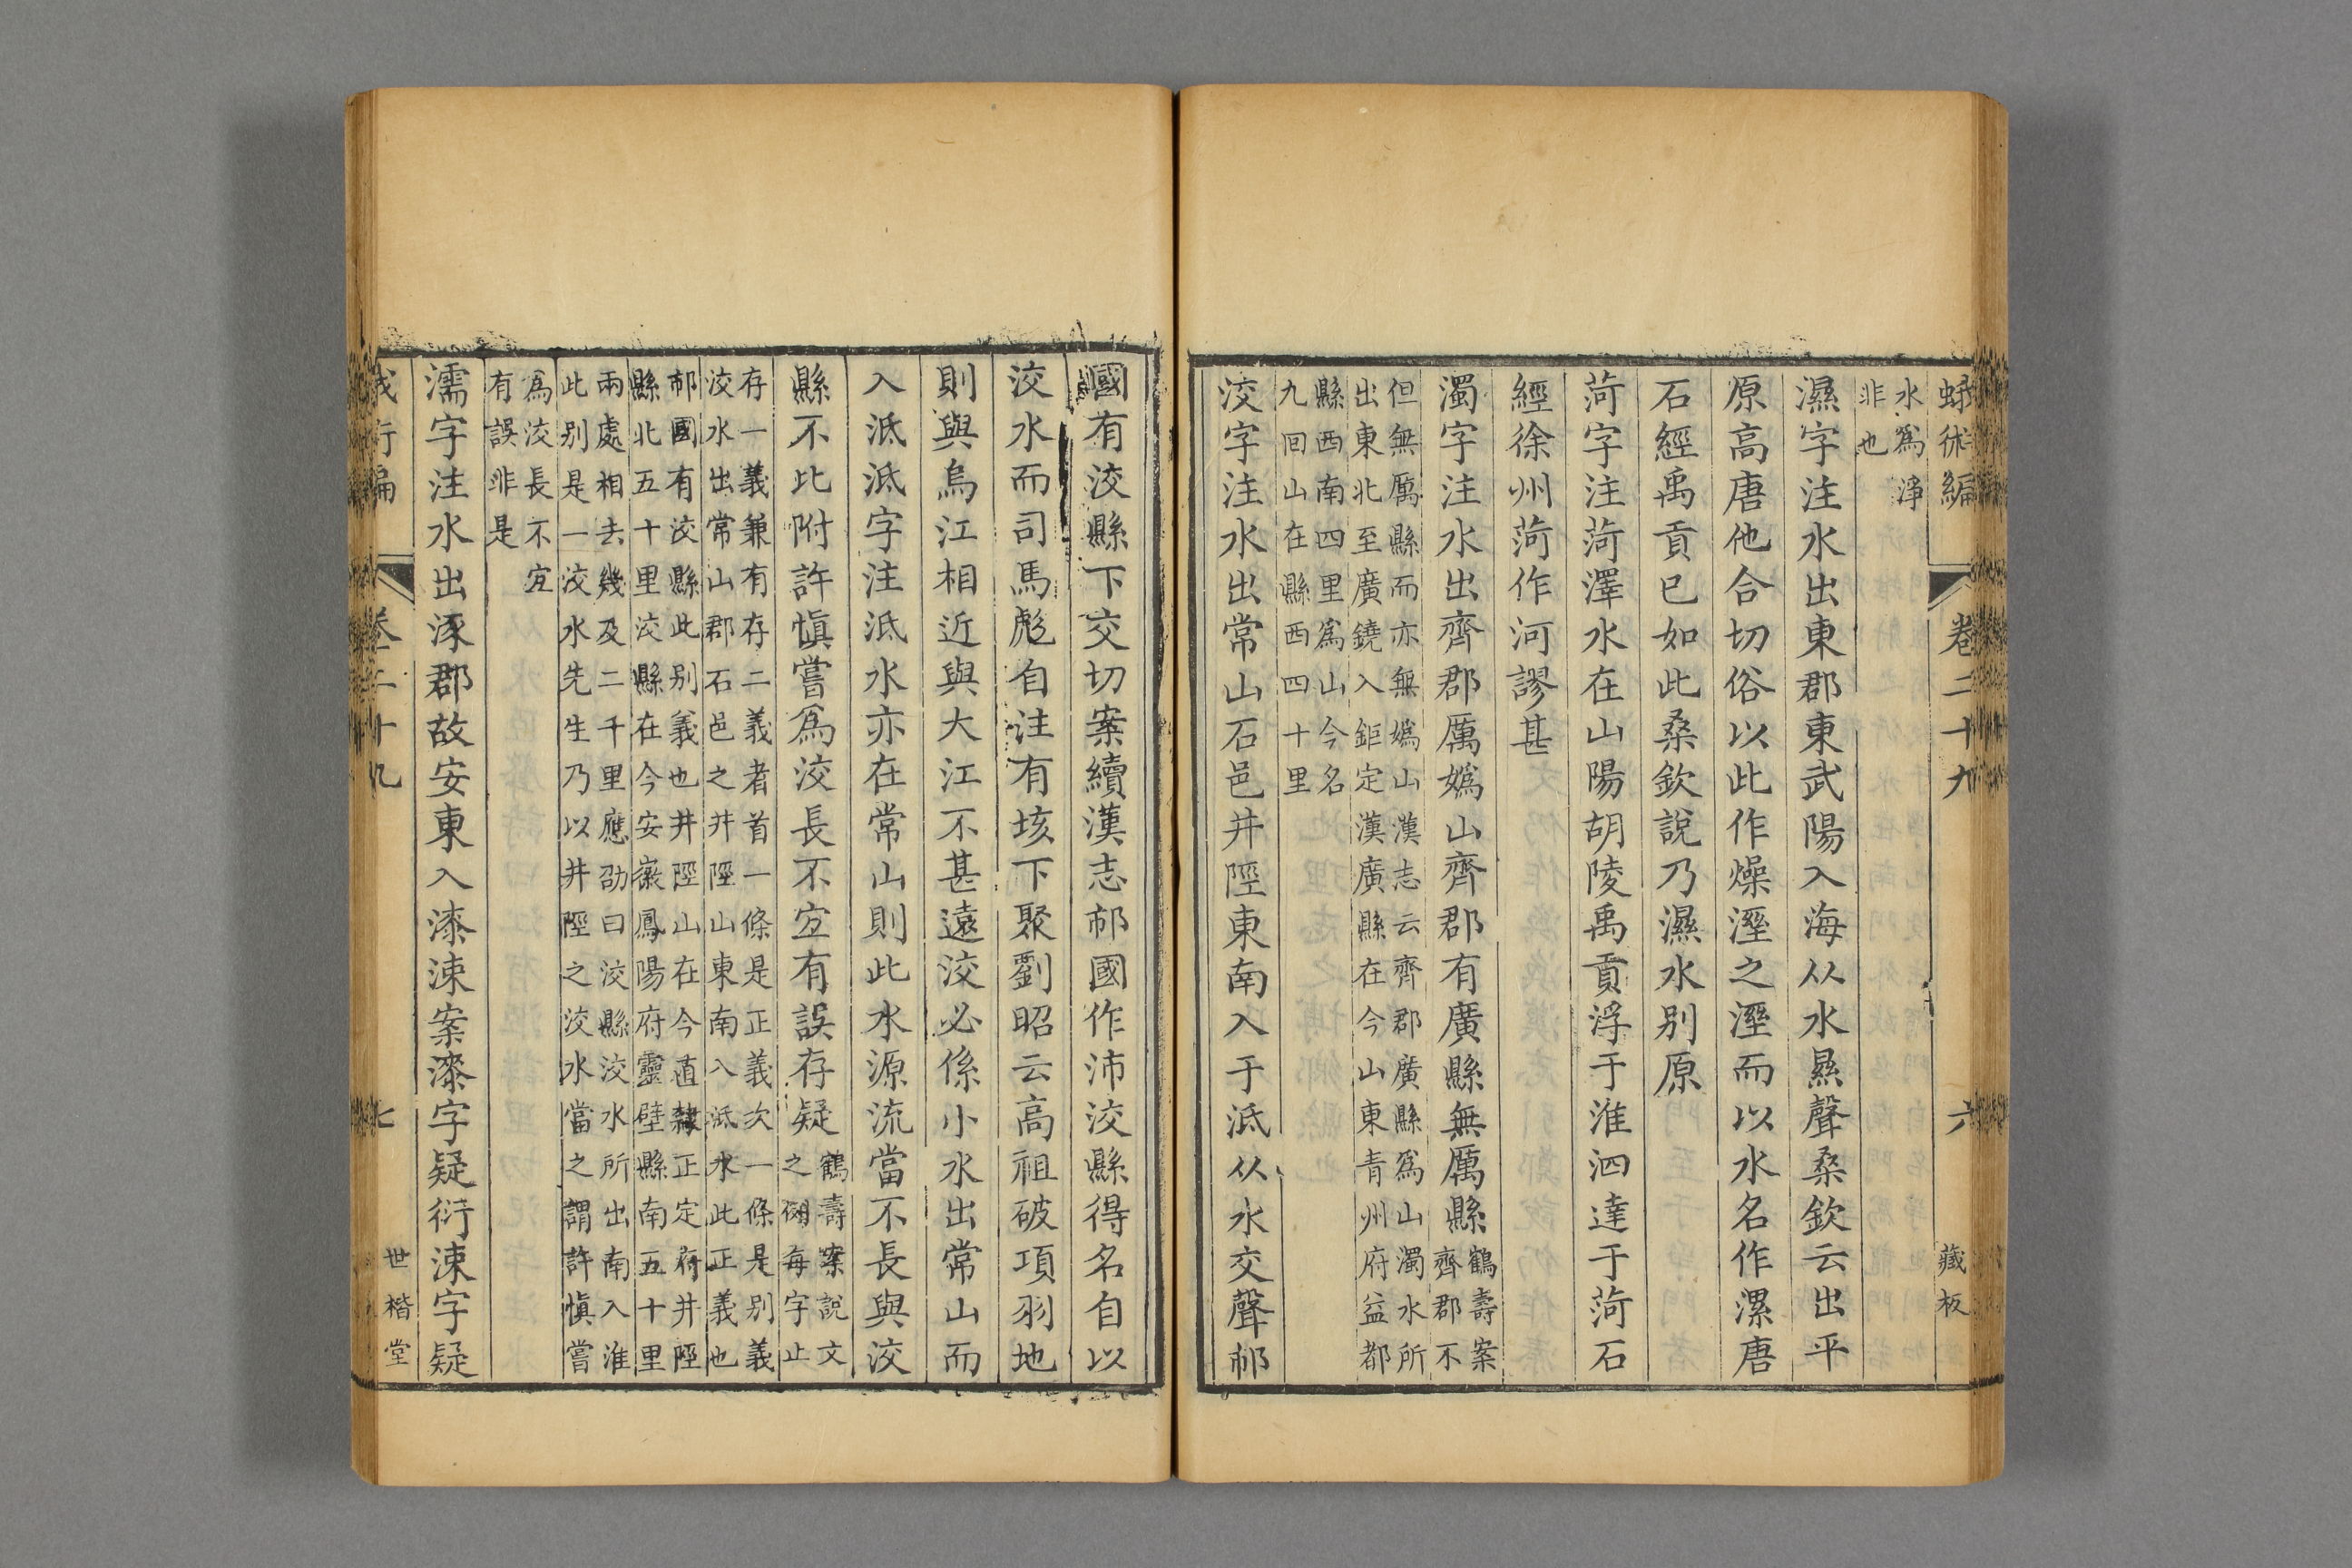 蛾術編 卷二十九 六 藏板
水爲淨
非也
濕字注水出東郡東武陽入海从水㬎聲桑欽云出平
原高唐他合切俗以此作燥溼之溼而以水名作漯唐
石經禹貢已如此桑欽說乃濕水别原
菏字注菏澤水在山陽胡陵禹貢浮于淮泗達于菏石
經徐州菏作河謬甚
濁字注水出齊郡厲嬀山齊郡有廣縣無厲縣
鶴壽案
齊郡不
但無厲縣而亦無嬀山漢志云齊郡廣縣爲山濁水所
出東北至廣鐃入鉅定漢廣縣在今山東青州府益都
縣西南四里爲山今名
九回山在縣西四十里
洨字注水出常山石邑井陘東南入于泜从水交聲邟
國有洨縣下交切案續漢志邟國作沛洨縣得名自以
洨水而司馬彪自注有垓下聚劉昭云高祖破項羽地
則與烏江相近與大江不甚遠洨必係小水出常山而
入泜泜字注泜水亦在常山則此水源流當不長與洨
縣不此附許愼嘗爲洨長不宜有誤存疑
鶴壽案說文
之例每字止
存一義兼有存二義者首一條是正義次一條是别義
洨水出常山郡石邑之井陘山東南入泜水此正義也
邟國有洨縣此别義也井陘山在今直隸正定府井陘
縣北五十里洨縣在今安徽鳳陽府靈壁縣南五十里
兩處相去幾及二千里應劭曰洨縣洨水所出南入淮
此别是一洨水先生乃以井陘之洨水當之謂許愼嘗
爲洨長不宜
有誤非是
濡字注水出涿郡故安東入漆涑案漆字疑衍涑字疑
卷二十九 七 世楷堂